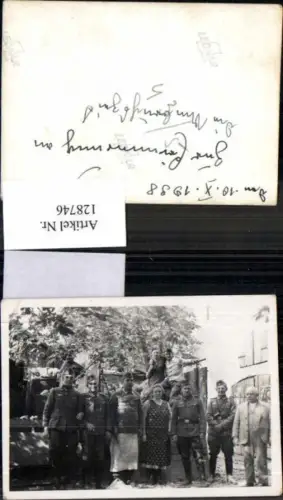 Zur Erinnerung an
die Umsturzzeit
den 10. X. 1938
Artikel Nr.
128746